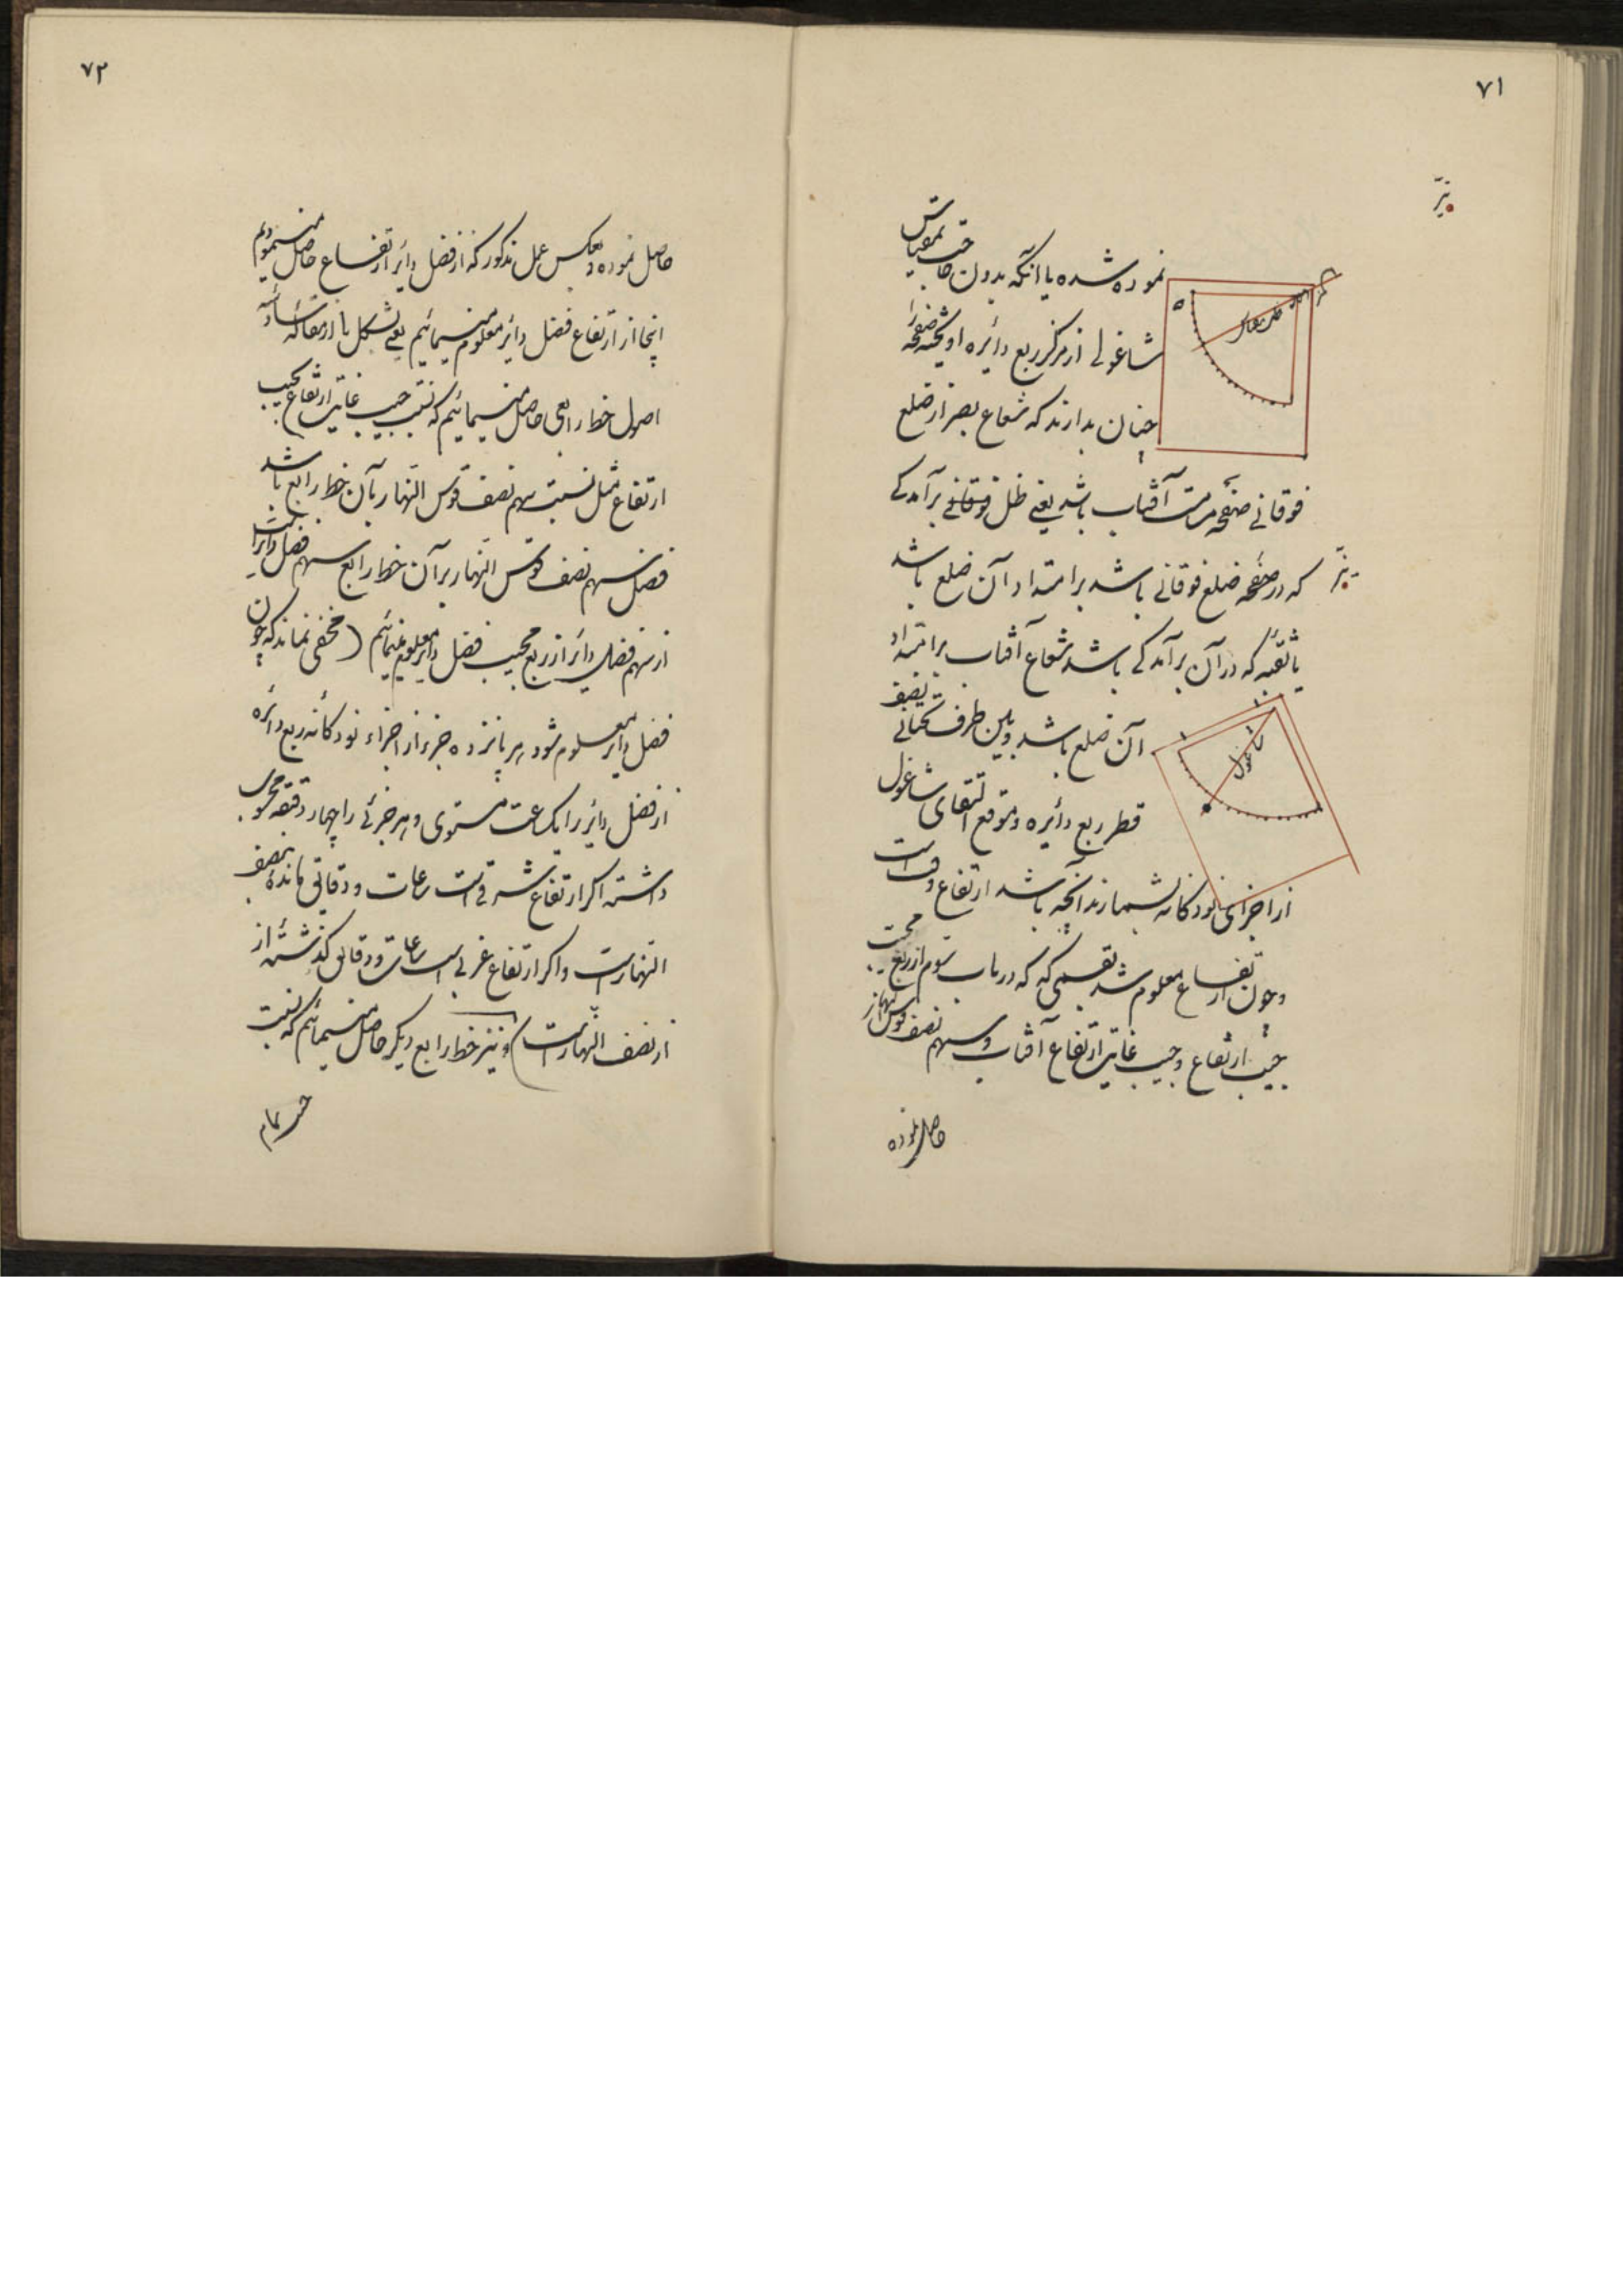 ۷۱
نیر
نموده شده یا آنکه بدون حاجت بمقیاس
شاغولی از مرکز ربع دائره آویخته صفحه را
چنان بدارند که شعاع بصر از ضلع
فوقانی صفحه مرمت آفتاب باشد یعنی ظل فوقانی برآمدگی
که در صفحه ضلع فوقانی باشد بر امتداد آن ضلع باشد
نیر
یا ثقبه که در آن برآمدگی باشد شعاع آفتاب بر امتداد
آن ضلع باشد و بین طرف تحتانی نصف
قطر ربع دائره و موقع التقای شاغول
شاغول
از اجزای نودگانه بشمارند آنچه باشد ارتفاع وقت است
و چون ارتفاع معلوم شد بقسمی که که در باب سوم از ربع مجیب
جیب ارتفاع و جیب غایت ارتفاع آفتاب و سهم نصف قوس النهار
حاصل نموده
۷۲
حاصل نموده و بعکس عمل مذکور که از فضل دائر ارتفاع حاصل مینمودیم
اینجا از ارتفاع فضل دائر معلوم مینمائیم یعنی بشکل از مقاله سادسه
اصول خط رابعی حاصل مینمائیم که نسبت جیب غایت ارتفاع بجیب
ارتفاع مثل نسبت سهم نصف قوس النهار بآن خط رابع باشد
فضل سهم نصف قوس النهار بر آن خط رابع سهم فضل دائر است
از سهم فضل دائر از ربع مجیب فضل دائر معلوم مینمائیم (مخفی نماند که چون
فضل دائر معلوم شود هر پانزده جزء از اجزاء نودگانه ربع دائره
از فضل دائر را یکساعت مستوی و هر جزئی را چهار دقیقه محسوب
داشته اگر ارتفاع شرقیست ساعات و دقایق مانده بنصف
النهار است و اگر ارتفاع غربی است ساعات و دقایق گذشته از
از نصف النهار است) و نیز خط رابع دیگر حاصل مینمائیم که نسبت
جیب تمام